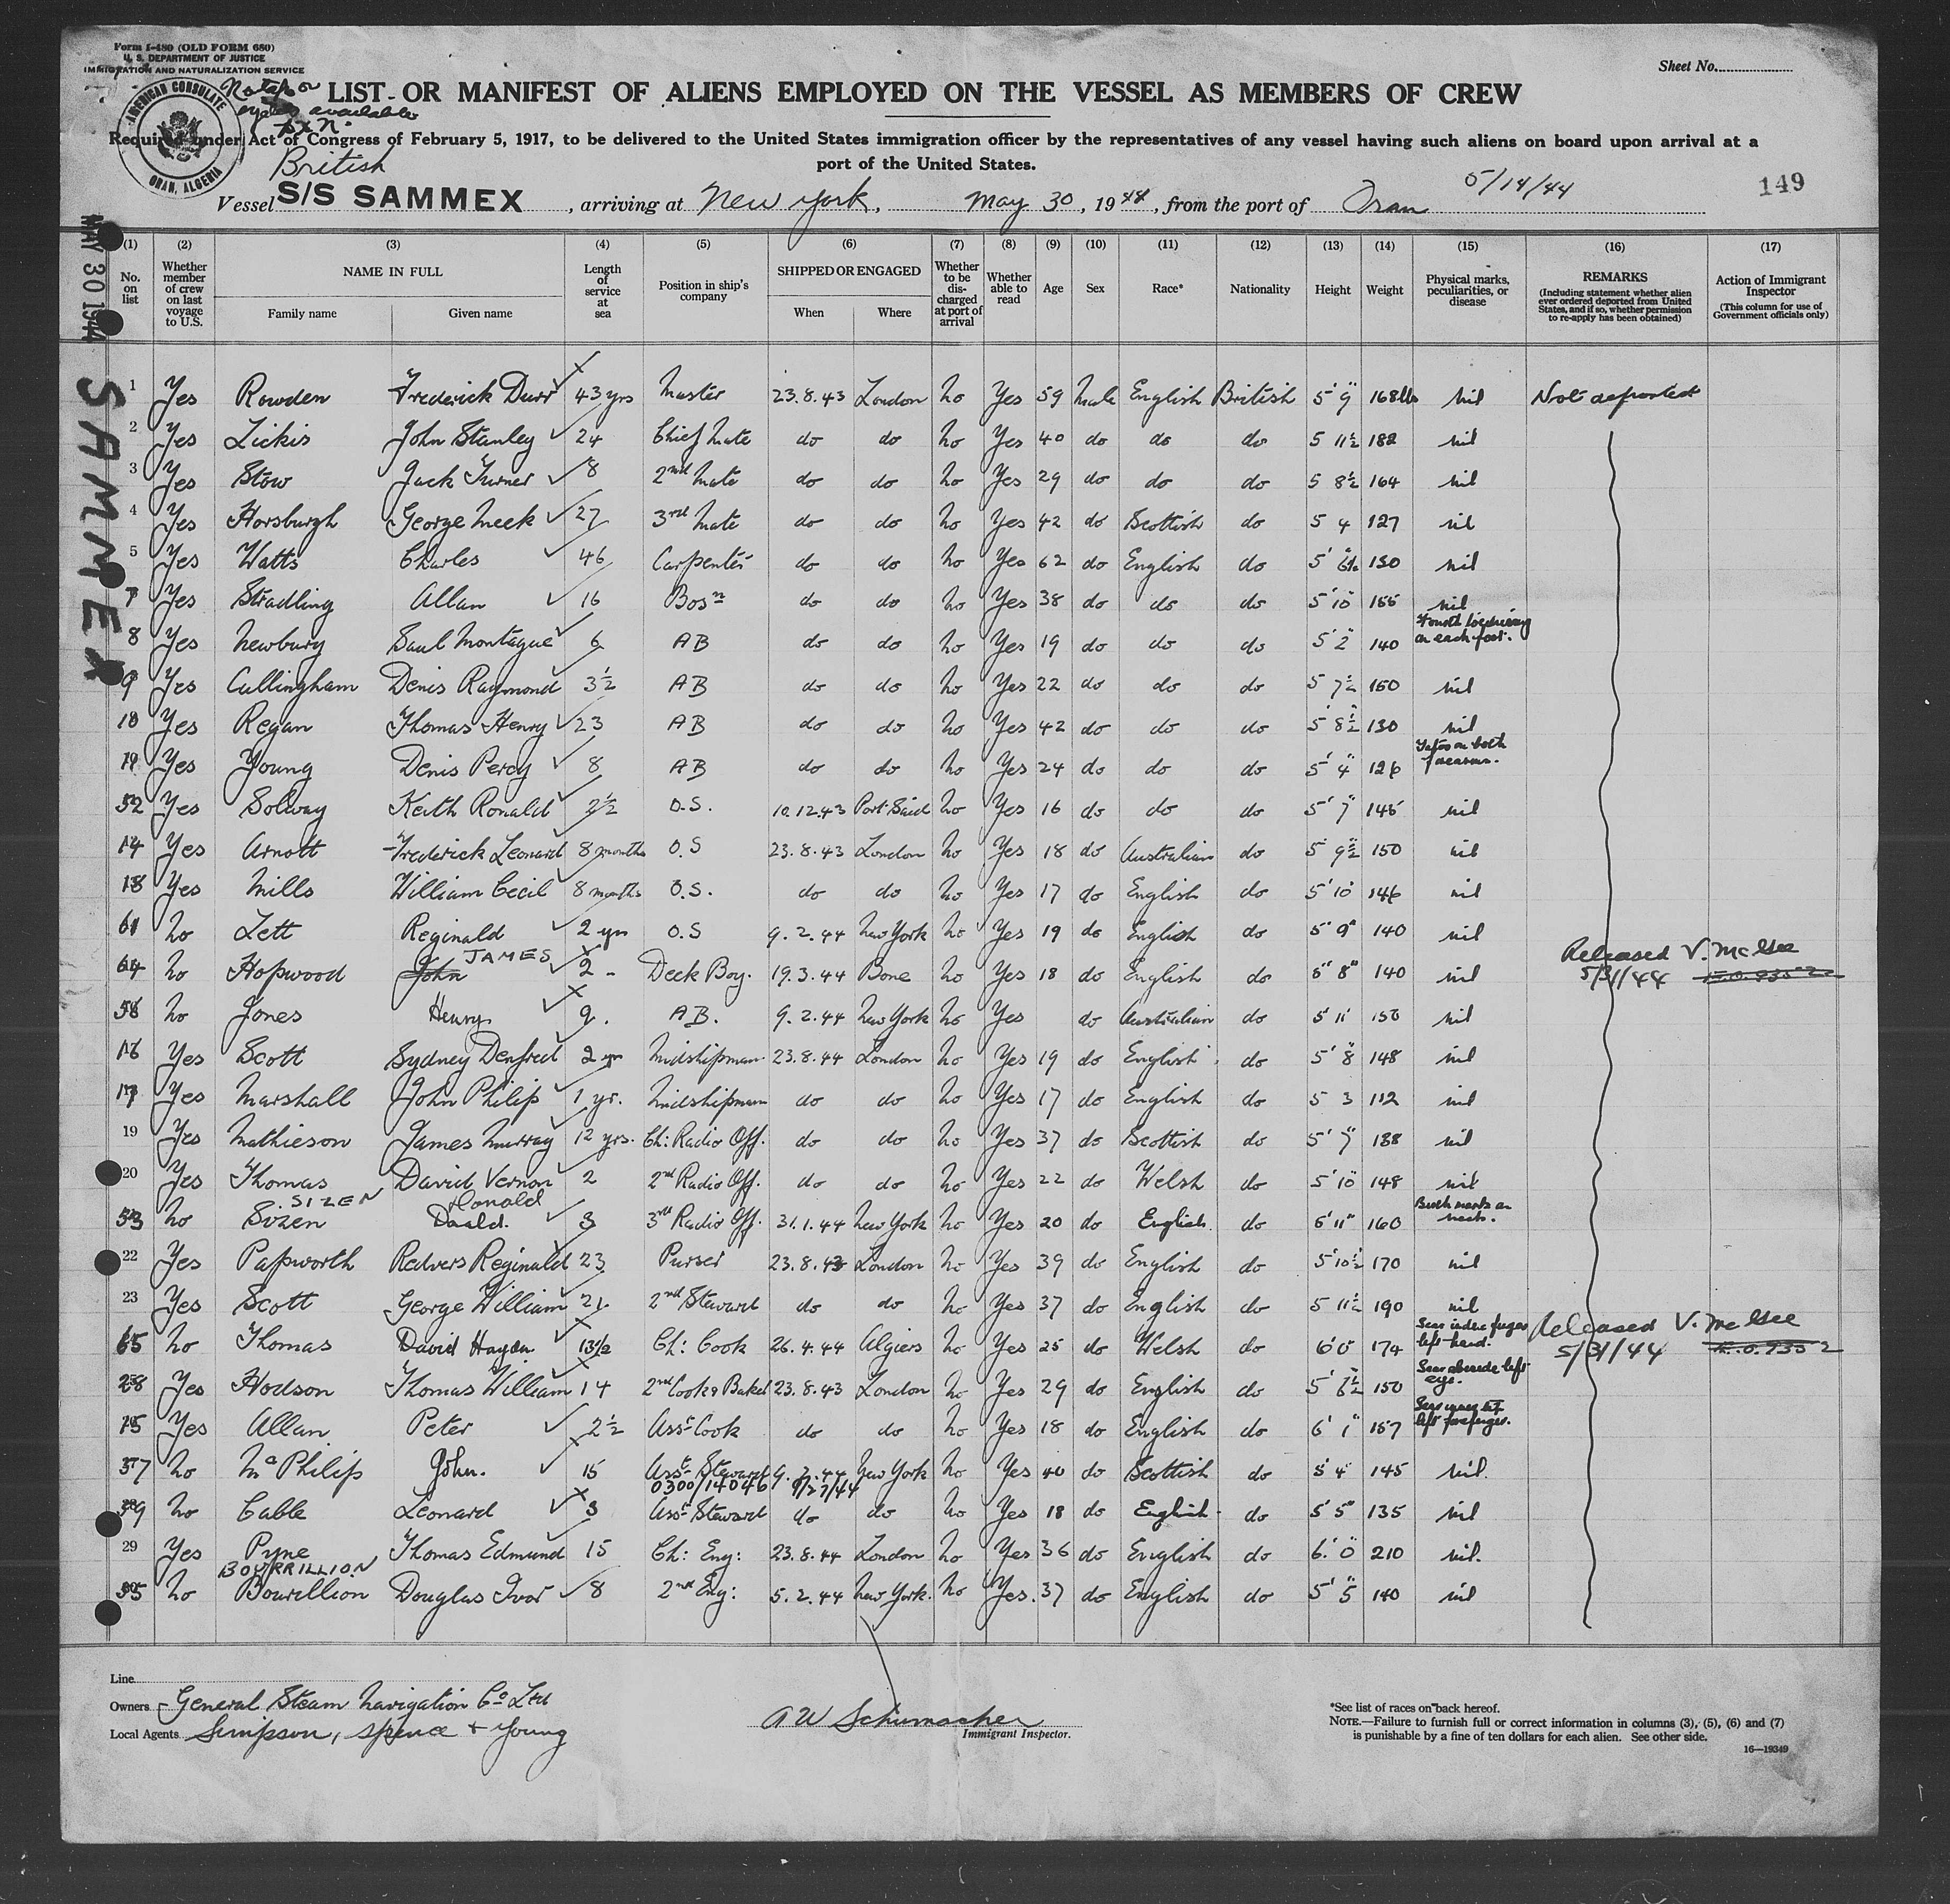 Form I-480 (OLD FORM 680)
U. S. DEPARTMENT OF JUSTICE
IMMIGRATION AND NATURALIZATION SERVICE
Sheet No.
AMERICAN CONSULATE
ORAN, ALGERIA
available
LIST OR MANIFEST OF ALIENS EMPLOYED ON THE VESSEL AS MEMBERS OF CREW
Required under Act of Congress of February 5, 1917, to be delivered to the United States immigration officer by the representatives of any vessel having such aliens on board upon arrival at a
port of the United States.
British
5/14/44
149
Vessel S/S SAMMEX, arriving at New York, May 30, 1944, from the port of Oran
MAY 30 1944
SAMMEX
(1) (2) (3) (4) (5) (6) (7) (8) (9) (10) (11) (12) (13) (14) (15) (16) (17)
No. on list
Whether member of crew on last voyage to U.S.
NAME IN FULL
Family name
Given name
Length of service at sea
Position in ship's company
SHIPPED OR ENGAGED
When
Where
Whether to be discharged at port of arrival
Whether able to read
Age
Sex
Race*
Nationality
Height
Weight
Physical marks, peculiarities, or disease
REMARKS
(Including statement whether alien ever ordered deported from United States, and if so, whether permission to re-apply has been obtained)
Action of Immigrant Inspector
(This column for use of Government officials only)
1 Yes Rowden Frederick Durr 43 yrs Master 23.8.43 London no Yes 59 Male English British 5' 9" 168lbs nil Not deported
2 Yes Lickis John Stanley 24 Chief Mate do do no Yes 40 do do do 5 11½ 182 nil
3 Yes Stow Jack Turner 8 2nd Mate do do no Yes 29 do do do 5 8½ 164 nil
4 Yes Horsburgh George Meek 27 3rd Mate do do no Yes 42 do Scottish do 5 4 127 nil
5 Yes Watts Charles 46 Carpenter do do no Yes 62 do English do 5' 130 nil
7 Yes Stradling Allan 16 Bosn do do no Yes 38 do do do 5' 10" 155 nil
8 Yes Newbury Saul Montague 6 AB do do no Yes 19 do do do 5' 2" 140 on each foot.
9 Yes Cullingham Denis Raymond 3½ AB do do no Yes 22 do do do 5 7½ 150 nil
10 Yes Regan Thomas Henry 23 AB do do no Yes 42 do do do 5' 8½ 130 nil
11 Yes Young Denis Percy 8 AB do do no Yes 24 do do do 5' 4" 126 Tatoo on both forearms.
52 Yes Solway Keith Ronald 2½ O.S. 10.12.43 Port Said no Yes 16 do do do 5' 7" 145 nil
14 Yes Arnott Frederick Leonard 8 months O.S 23.8.43 London no Yes 18 do Australian do 5' 9½ 150 nil
18 Yes Mills William Cecil 8 months O.S. do do no Yes 17 do English do 5' 10" 146 nil
61 no Lett Reginald 2 yrs O.S 9.2.44 New York no Yes 19 do English do 5" 9" 140 nil
64 no Hopwood John JAMES 2 - Deck Boy. 19.3.44 Bone no Yes 18 do English do 5" 8" 140 nil Released V. McGee 5/31/44
58 no Jones Henry 9. A.B. 9.2.44 New York no Yes do Australian do 5' 11" 150 nil
16 Yes Scott Sydney Denfred 2 yr Midshipman 23.8.44 London no Yes 19 do English do 5' 8" 148 nil
17 Yes Marshall John Philip 1 yr. Midshipman do do no Yes 17 do English do 5 3 112 nil
19 Yes Mathieson James Murray 12 yrs. Ch: Radio Off. do do no Yes 37 do Scottish do 5' 7" 138 nil
20 Yes Thomas David Vernon 2 2nd Radio Off. do do no Yes 22 do Welsh do 5' 10" 148 nil
SIZEN Donald
53 no Sizen Donald. 3 3rd Radio Off. 31.1.44 New York no Yes 20 do English do 6' 11" 160 Birth marks on neck.
22 Yes Papworth Redvers Reginald 23 Purser 23.8.43 London no Yes 39 do English do 5' 10½ 170 nil
23 Yes Scott George William 21 2nd Steward do do no Yes 37 do English do 5 11½ 190 nil
65 no Thomas David Haydn 13½ Ch: Cook 26.4.44 Algiers no Yes 25 do Welsh do 6' 0" 174 Scar index finger left hand. Released V. McGee 5/31/44
28 Yes Hodson Thomas William 14 2nd Cook & Baker 23.8.43 London no Yes 29 do English do 5' 6½ 150 Scar left eye.
15 Yes Allan Peter 2½ Asst Cook do do no Yes 18 do English do 6' 1" 157
37 no McPhilip John. 15 Asst Steward 9.2.44 New York no Yes 40 do Scottish do 5' 4" 145 nil.
0300/14046 9/27/44
39 no Cable Leonard 3 Asst Steward do do no Yes 18 do English do 5' 5" 135 nil
29 Yes Pyne Thomas Edmund 15 Ch: Eng: 23.8.44 London no Yes 36 do English do 6' 0" 210 nil.
BOURRILLION
35 no Bourillion Douglas Ivor 8 2nd Eng: 5.2.44 New York. no Yes. 37 do English do 5' 5" 140 nil
Line
Owners General Steam Navigation Co Ltd
Local Agents Simpson, Spence + Young
A W Schumacher
Immigrant Inspector.
*See list of races on back hereof.
NOTE.—Failure to furnish full or correct information in columns (3), (5), (6) and (7)
is punishable by a fine of ten dollars for each alien. See other side.
16—19349